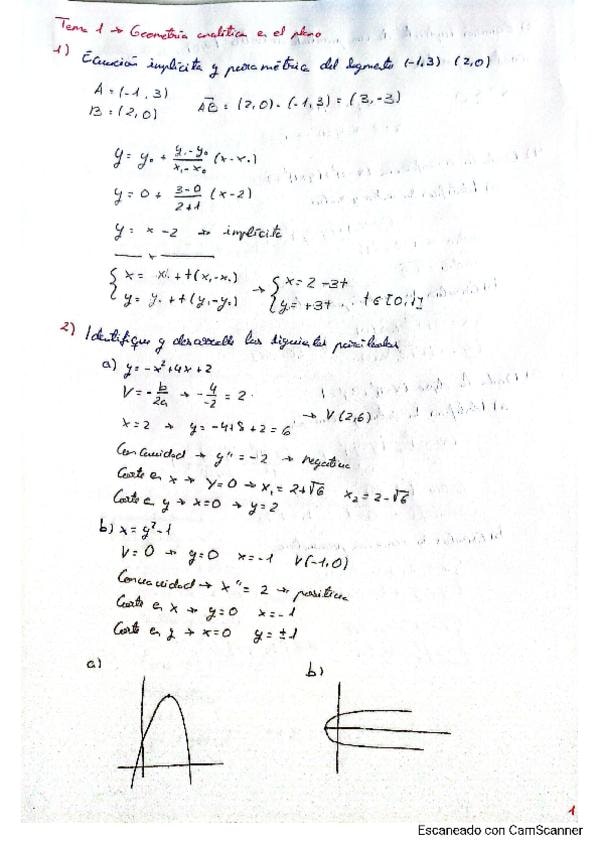 Tema 1 → Geometría analítica en el plano
1) Ecuación implícita y paramétrica del segmento (-1,3) (2,0)
A = (-1, 3)
B = (2,0)   AB = (2,0) - (-1,3) = (3,-3)
y = y₀ + (y₁-y₀)/(x₁-x₀) (x-x₀)
y = 0 + (3-0)/(2+1) (x-2)
y = x -2 → implícita
{ x = x₀ + t(x₁-x₀) → { x = 2 -3t
{ y = y₀ + t(y₁-y₀)   { y = +3t   t∈[0,1]
2) Identifique y desarrolle las siguientes parábolas
a) y = -x²+4x+2
V = -b/2a → -4/-2 = 2
→ V(2,6)
x=2 → y = -4+8+2 = 6
Concavidad → y'' = -2 → negativa
Corte en x → y=0 → x₁ = 2+√6   x₂ = 2-√6
Corte en y → x=0 → y=2
b) x = y²-1
V = 0 → y=0   x=-1   V(-1,0)
Concavidad → x'' = 2 → positiva
Corte en x → y=0   x=-1
Corte en y → x=0   y = ±1
a)   b)
1
Escaneado con CamScanner